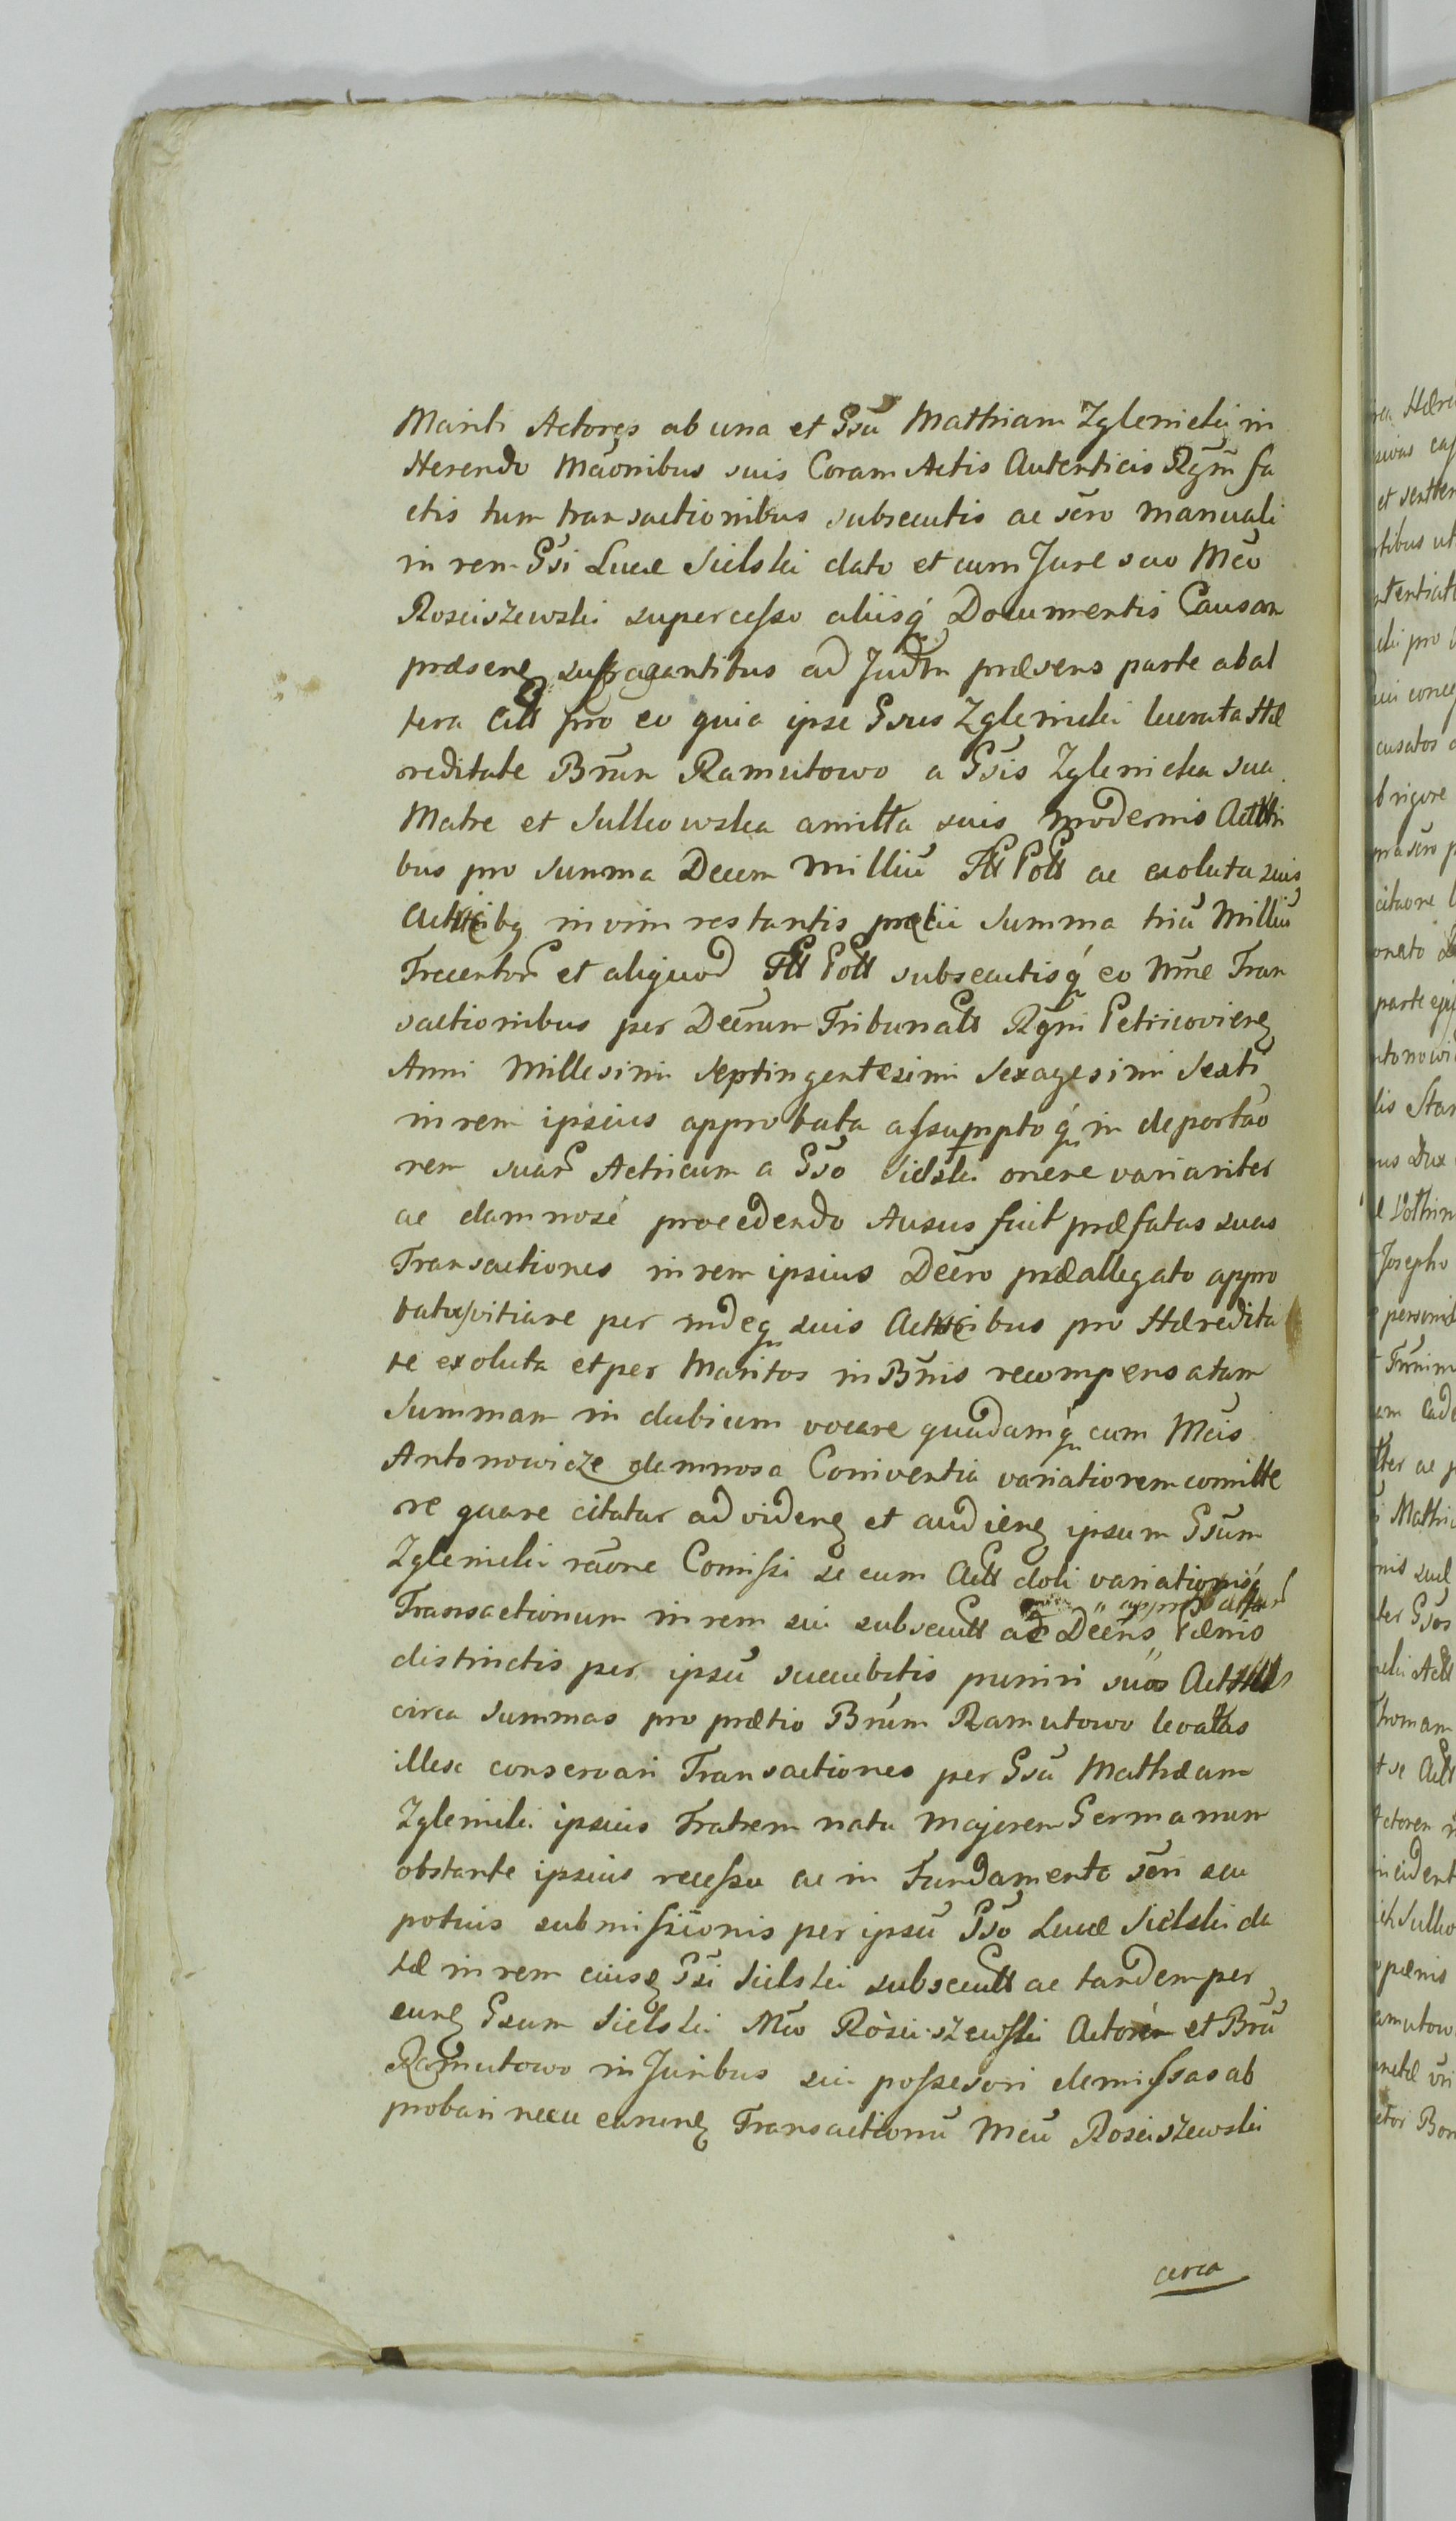 Mariti Actores ab una et Gsū Mathiam Zglenicki in
Herendo Mãonibus suis Coram Actis Autenticis Rgñi fa
ctis tum transactionibus subsecutis ac scro manuali
in rem Gsi Lucæ Sielski dato et cum Jure suo Mco
Rosciszewski supercesso aliisq́ Documentis Causam
præseng suffragantibus ad Judm præsens parte ab al
tera Citt pro eo quia ipse Gsus Zglenicki levata Hæ
reditate Brun Ramutowo a Gsis Zglenicka sua
Matre et Sulkowska amitta suis modernis Acttri
bus pro summa Decem Milliū Fll Poll ac exoluta suis
Acttribg in vim restantis prætii summa triū Milliū
Trecentor et aliquod Fll Poll subsecutisq́ eo Nme Tran
sactionibus per Decrum Tribunals Rgni Petricovieng
Anni Millesimi Septingentesimi Sexagesimi Sexti
in rem ipsius approbata assumptoq́ in deportao
nem suar Actricum a Gso Sielski onere varianter
ac damnose procedendo Ausus fuit præfatas suas
Transactiones in rem ipsius Decro præallegato appro
batas vitiare per indeq suis Acttribus pro Hæredita
te exoluta et per Maritos in Bnis recompensatam
Summam in dubium vocare quadamq́ cum Mcis
Antonowicze damnosa Coniventia variationem comitte
re quare citatur ad videng et audieng ipsum Gsum
Zglenicki raone Comissi se cum Actt doli variationisq́
Transactionum in rem sui subsecutt ac Decris Pænis
approbattar
distinctis per ipsū succubitis puniri suos Actt
circa Summas pro prætio Brum Ramutowo levatas
illese conservari Transactiones per Gsū Mathæam
Zglenicki ipsius Fratrem natu Majorem Germanum
obstante ipsius recessu ac in Fundamento scri seu
potius submissionis per ipsū Gso Lucæ Sielski da
tæ in rem eiusg Gsi Sielski subsecutt ac tandem per
eung Gsum Sielski Mco Rosciszewski Actorem et Brū
Ramutowo in Juribus sui possesori demissas ab
probari necu earung Transactionū Mcū Rosciszewski
circa